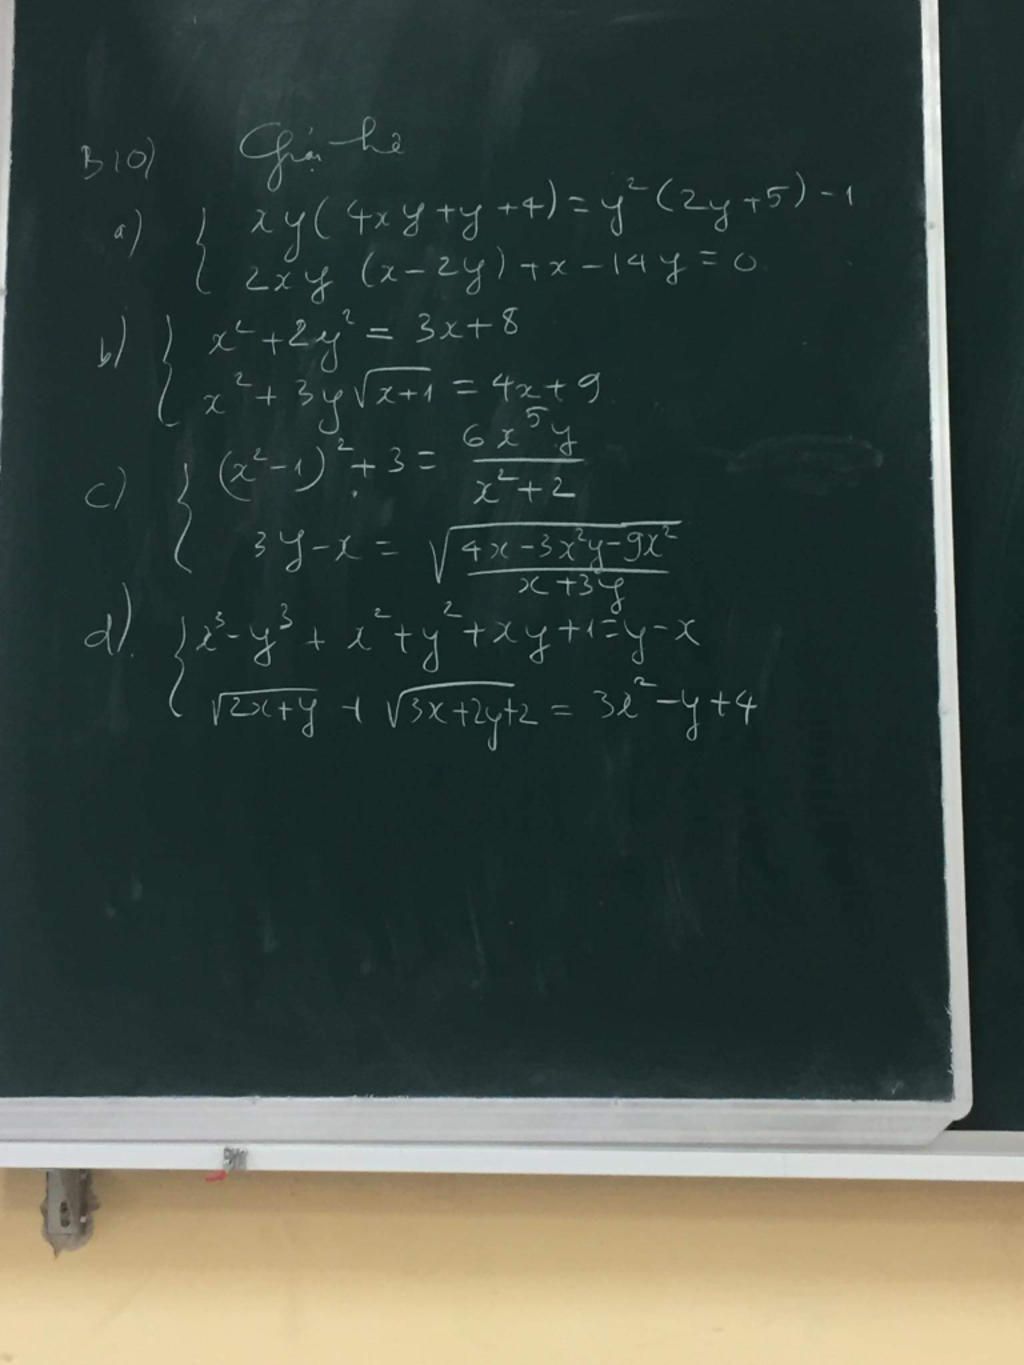 B10) Giải hệ
a) { xy(4xy+y+4)=y²(2y+5)-1
2xy (x-2y)+x-14y=0
b) { x²+2y² = 3x+8
x²+3y√(x+1) = 4x+9
c) { (x²-1)²+3 = 6x⁵y/(x²+2)
3y-x = √((4x-3x²y-9x²)/(x+3y))
d) { x³-y³+x²+y²+xy+1=y-x
√(2x+y) + √(3x+2y+2) = 3x²-y+4